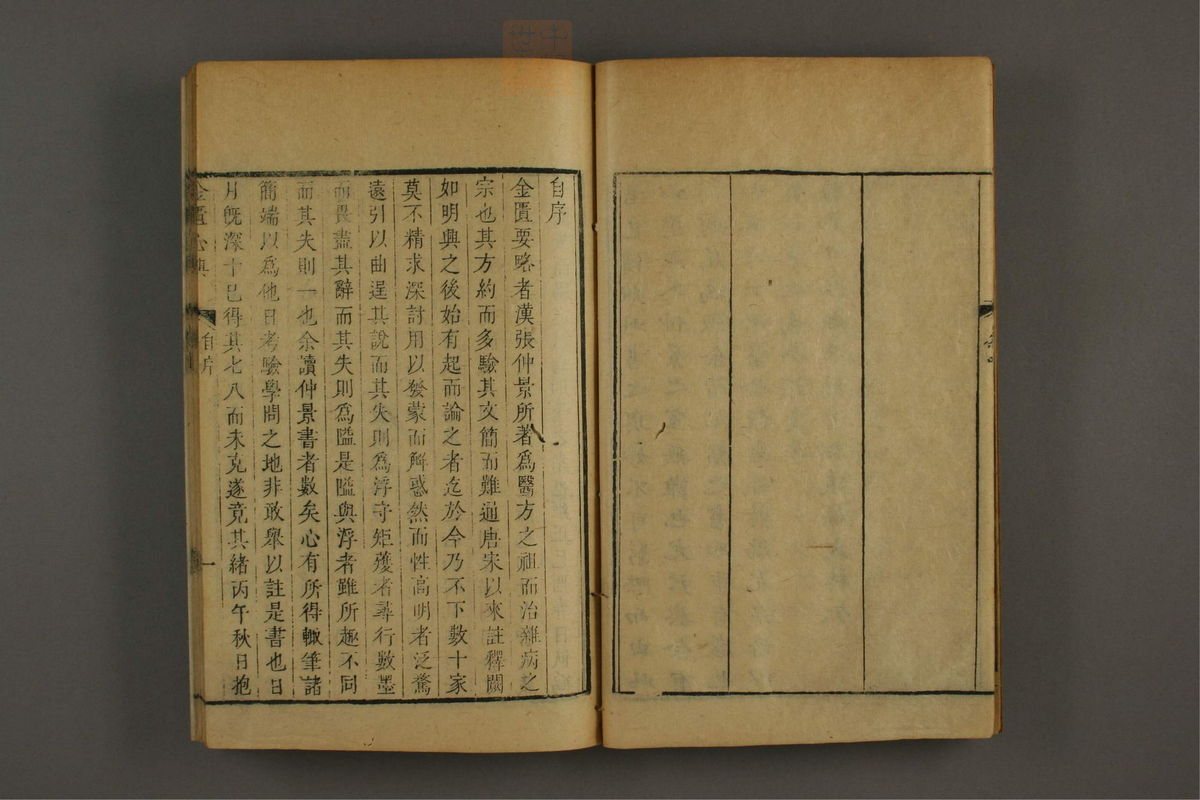 自序
金匱要略者漢張仲景所著爲醫方之祖而治雜病之
宗也其方約而多驗其文簡而難通唐宋以來註釋闕
如明興之後始有起而論之者迄於今乃不下數十家
莫不精求深討用以發蒙而解惑然而性高明者泛騖
遠引以曲逞其說而其失則爲浮守矩矱者尋行數墨
而畏盡其辭而其失則爲隘是隘與浮者雖所趣不同
而其失則一也余讀仲景書者數矣心有所得輒筆諸
簡端以爲他日考驗學問之地非敢舉以註是書也日
月旣深十已得其七八而未克遂竟其緒丙午秋日抱
金匱心典 自序 一